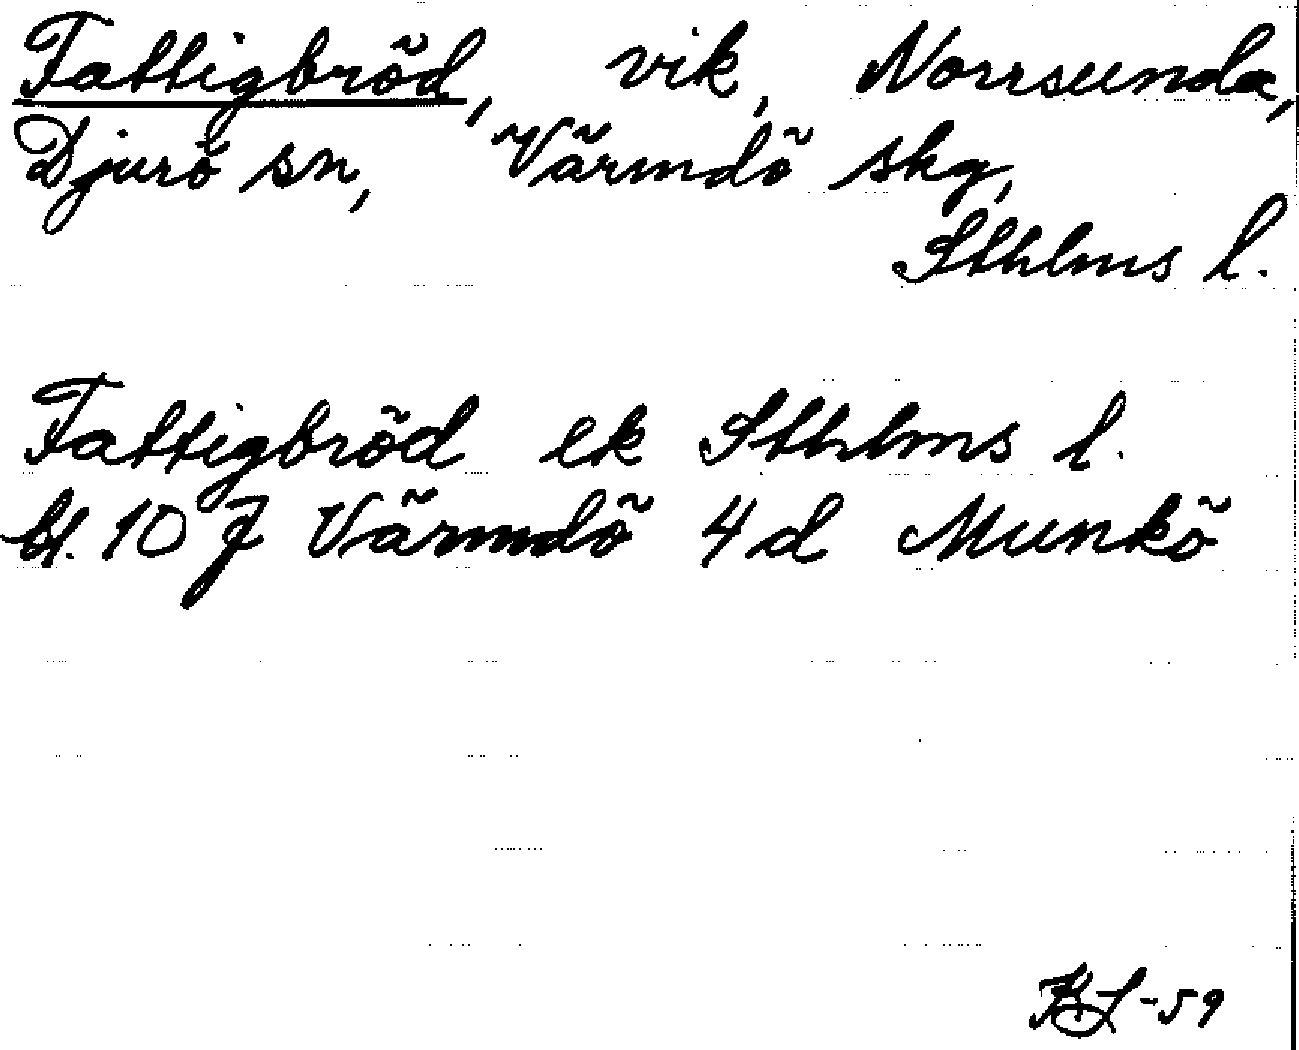 Fattigbröd, vik, Norrsunda,
Djurö sn, Värmdö skg,
Sthlms l.
Fattigbröd ek Sthlms l.
bl. 10 J Värmdö 4 d Munkö
-59